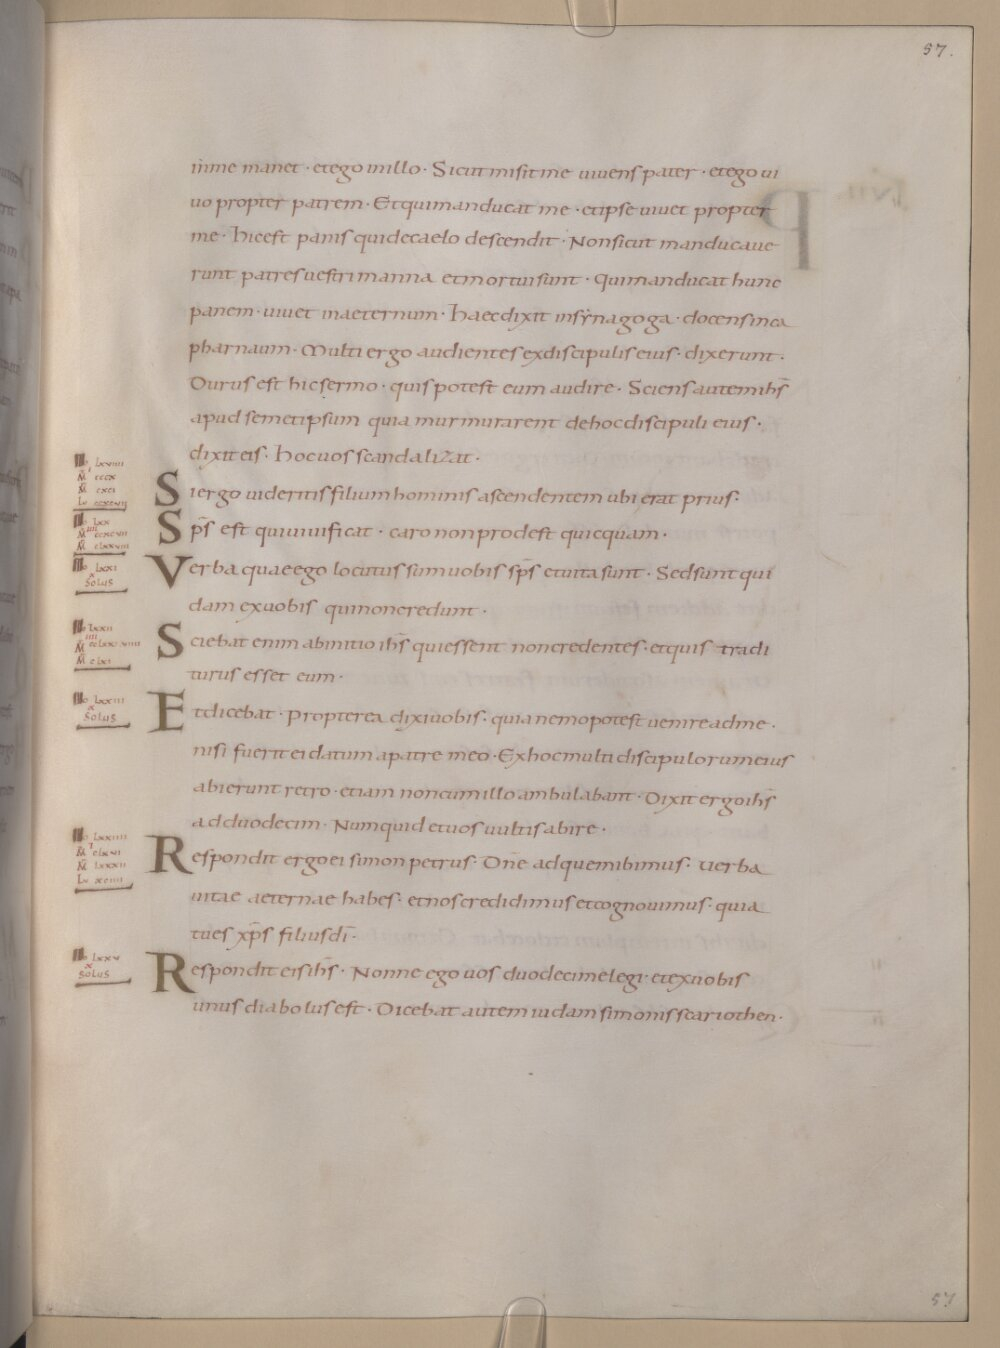 57.
inme manet · et ego inillo · Sicut misit me uiuens pater · et ego ui
uo propter patrem · Et qui manducat me · et ipse uiuet propter
me · hic est panis qui de caelo descendit · Non sicut manducaue
runt patres uestri manna et mortui sunt · Qui manducat hunc
panem · uiuet in aeternum · haec dixit in synagoga · docens in ca
pharnaum · Multi ergo audientes ex discipulis eius · dixerunt ·
Durus est hic sermo · quis potest eum audire · Sciens autem ihs
apud semetipsum quia murmurarent de hoc discipuli eius ·
dixit eis · hoc uos scandalizat ·
Si ergo uideritis filium hominis ascendentem ubi erat prius ·
Sps est qui uiuificat · caro non prodest quicquam ·
Verba quae ego locutus sum uobis sps et uita sunt · Sed sunt qui
dam ex uobis qui non credunt ·
Sciebat enim ab initio ihs qui essent non credentes · et quis tradi
turus esset eum ·
Et dicebat · Propterea dixi uobis · quia nemo potest uenire ad me ·
nisi fuerit ei datum a patre meo · Ex hoc multi discipulorum eius
abierunt retro · et iam non cum illo ambulabant · Dixit ergo ihs
ad duodecim · Numquid et uos uultis abire ·
Respondit ergo ei simon petrus · Dne ad quem ibimus · uerba
uitae aeternae habes · et nos credidimus et cognouimus · quia
tu es xps filius di ·
Respondit eis ihs · Nonne ego uos duodecim elegi · et ex uobis
unus diabolus est · Dicebat autem iudam simonis scariothen ·
lxx
lxxi
x
solus
lxxii
clxi
lxxiii
x
solus
lxxiiii
lxxxii
lxxv
x
solus
57